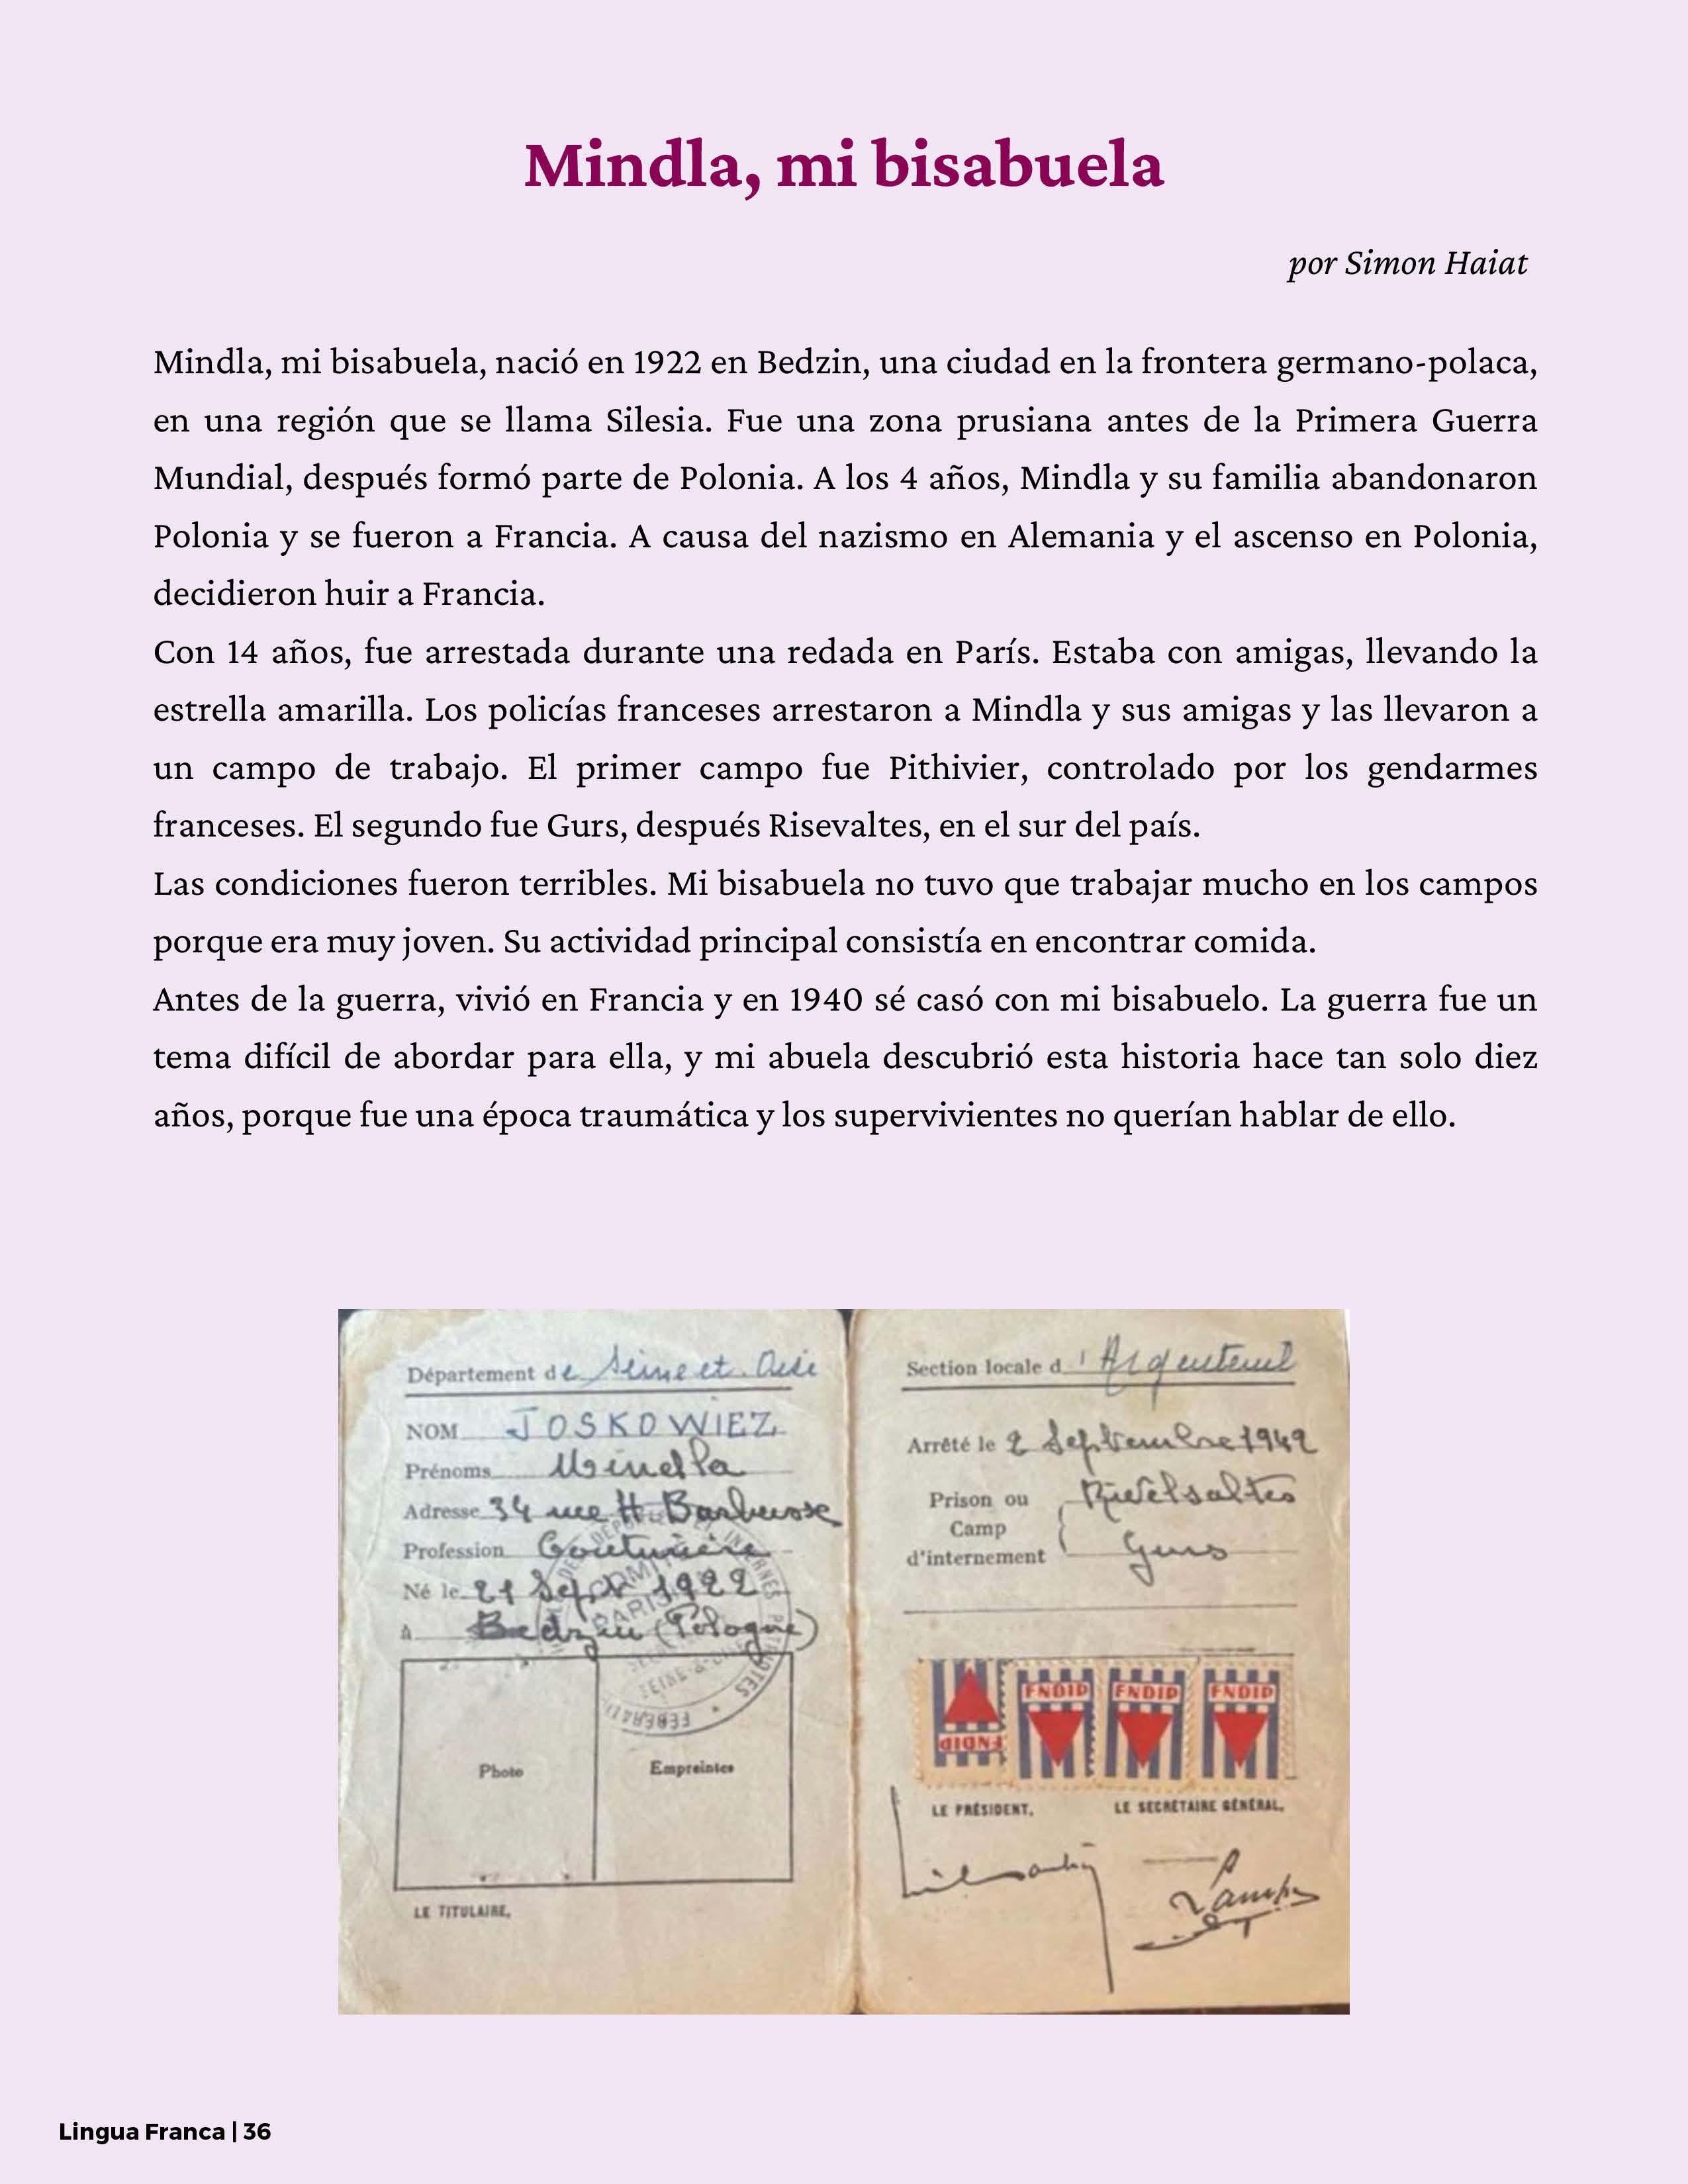 Mindla, mi bisabuela
por Simon Haiat
Mindla, mi bisabuela, nació en 1922 en Bedzin, una ciudad en la frontera germano-polaca,
en una región que se llama Silesia. Fue una zona prusiana antes de la Primera Guerra
Mundial, después formó parte de Polonia. A los 4 años, Mindla y su familia abandonaron
Polonia y se fueron a Francia. A causa del nazismo en Alemania y el ascenso en Polonia,
decidieron huir a Francia.
Con 14 años, fue arrestada durante una redada en París. Estaba con amigas, llevando la
estrella amarilla. Los policías franceses arrestaron a Mindla y sus amigas y las llevaron a
un campo de trabajo. El primer campo fue Pithivier, controlado por los gendarmes
franceses. El segundo fue Gurs, después Risevaltes, en el sur del país.
Las condiciones fueron terribles. Mi bisabuela no tuvo que trabajar mucho en los campos
porque era muy joven. Su actividad principal consistía en encontrar comida.
Antes de la guerra, vivió en Francia y en 1940 sé casó con mi bisabuelo. La guerra fue un
tema difícil de abordar para ella, y mi abuela descubrió esta historia hace tan solo diez
años, porque fue una época traumática y los supervivientes no querían hablar de ello.
Département de Seine et Oise
NOM JOSKOWIEZ
Prénoms Mindla
Adresse 34 rue H. Barbusse
Profession Couturière
Né le 21 Sept 1922
à Bedzin (Pologne)
Photo
Empreintes
LE TITULAIRE,
Section locale d'Argenteuil
Arrêté le 2 Septembre 1942
Prison ou Rivelsaltes
Camp
d'internement Gurs
FNDIP FNDIP FNDIP FNDIP
LE PRÉSIDENT, LE SECRÉTAIRE GÉNÉRAL,
Lingua Franca | 36